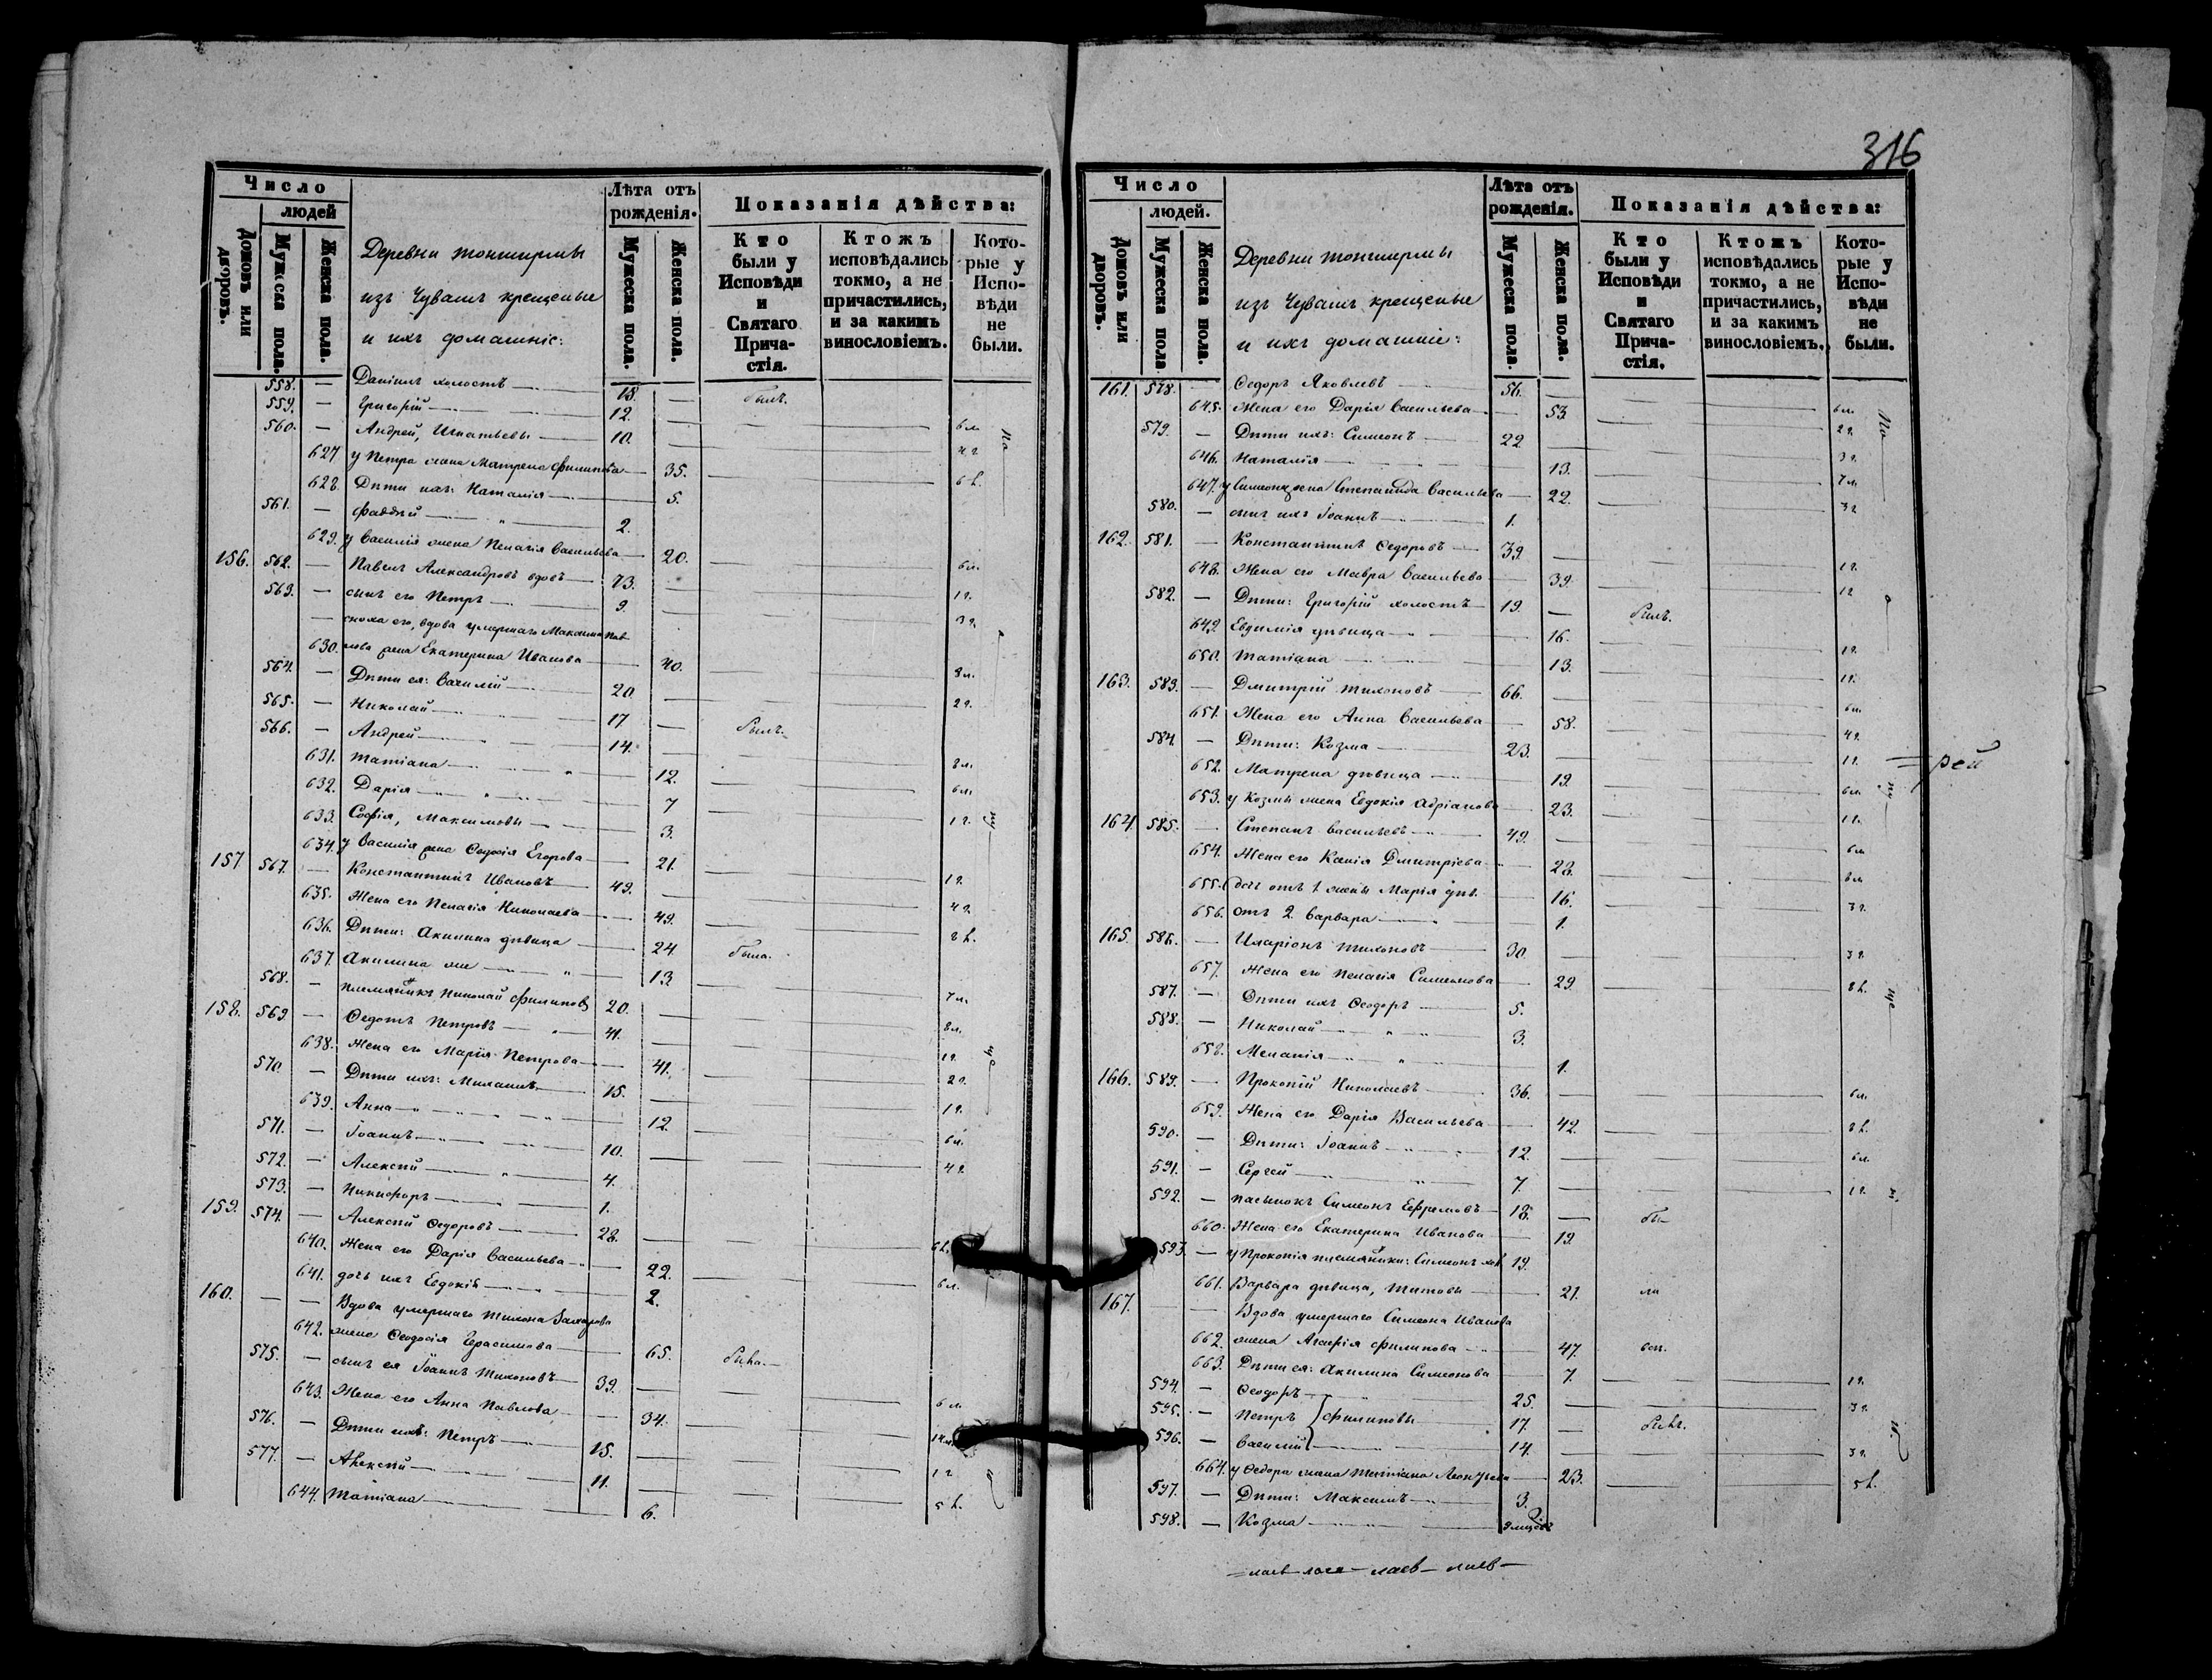 Число
людей
Домовъ или дворовъ.
Мужеска пола.
Женска пола.
Деревни Тоншермы
изъ Чувашъ крещеные
и ихъ домашніе:
Лѣта отъ рожденія.
Мужеска пола.
Женска пола.
Показанія дѣйства:
Кто были у Исповѣди и Святаго Причастія.
Ктожъ исповѣдались токмо, а не причастились, и за какимъ винословіемъ.
Которые у Исповѣди не были.
558. — Даніилъ холостъ — 18. — былъ.
559. — Григорій — 12. —
560. — Андрей, Игнатьевы — 10.
627 у Петра жена Матрена Филипова — 35.
628. Дѣти ихъ: Наталія — 5.
561. — Фаддей — 2.
629. у Василія жена Пелагія Васильева — 20.
156. 562. — Павелъ Александровъ вдовъ — 73. —
563. — сынъ его Петръ — 9. —
— сноха его, вдова умершаго Максима Пав-
630. лова жена Екатерина Иванова — 40.
564. — Дѣти ея: Василій — 20. —
565. — Николай — 17 — былъ.
566. — Андрей — 14. —
631. Татіана — 12.
632. Дарія — 7
633. Софія, Максимовы — 3.
634. у Василія жена Ѳедосія Егорова — 21.
157 567. — Константинъ Ивановъ — 49. —
635. Жена его Пелагія Николаева — 49.
636. Дѣти: Акилина дѣвица — 24 была.
637. Акилина же — 13
568. — племянникъ Николай Филиповъ 20. —
158. 569. — Ѳедотъ Петровъ — 41. —
638. Жена его Марія Петрова — 41.
570. — Дѣти ихъ: Михаилъ — 15. —
639. Анна — 12.
571. — Іоаннъ — 10. —
572. — Алексѣй — 4.
573. — Никифоръ — 1.
159. 574. — Алексѣй Ѳедоровъ — 28. —
640. Жена его Дарія Васильева — 22.
641. дочь ихъ Евдокія — 2.
160. — — Вдова умершаго Тихона Захарова
642. жена Ѳеодосія Герасимова — 65.
575. — сынъ ея Іоаннъ Тихоновъ — 39. —
643. Жена его Анна Павлова — 34.
576. — Дѣти ихъ: Петръ — 15. —
577. — Алексѣй — 11. —
644. Татіана — 6.
316
Число
людей.
Домовъ или дворовъ.
Мужеска пола
Женска пола.
Деревни Тоншермы
изъ Чувашъ крещеные
и ихъ домашніе:
Лѣта отъ рожденія.
Мужеска пола.
Женска пола.
Показанія дѣйства:
Кто были у Исповѣди и Святаго Причастія.
Ктожъ исповѣдались токмо, а не причастились, и за какимъ винословіемъ.
Которые у Исповѣди не были.
161. 578. — Ѳедоръ Яковлевъ — 56. —
645. Жена его Дарія Васильева — 53
579. — Дѣти ихъ: Симеонъ — 22
646. Наталія — 13.
647. у Симеона жена Степанида Васильева — 22.
580. — сынъ ихъ Іоаннъ — 1.
162. 581. — Константинъ Ѳедоровъ — 39. —
648. Жена его Мавра Васильева — 39.
582. — Дѣти: Григорій холостъ — 19. — былъ.
649. Евдимія дѣвица — 16.
650. Татіана — 13.
163. 583. — Дмитрій Тихоновъ — 66. —
651. Жена его Анна Васильева — 58.
584. — Дѣти: Козма — 23. —
652. Матрена дѣвица — 19.
653. у Козмы жена Евдокія Адріанова — 23.
164. 585. — Степанъ Васильевъ — 49. —
654. Жена его Ксенія Дмитріева — 28.
655. дочь отъ 1. жены Марія дѣв. — 16.
656. отъ 2. Варвара — 1.
165. 586. — Иларіонъ Тихоновъ — 30. —
657. Жена его Пелагія Симеонова — 29.
587. — Дѣти ихъ Ѳеодоръ — 5.
588. — Николай — 3.
658. Меланія — 1.
166. 589. — Прокопій Николаевъ — 36. —
659. Жена его Дарія Васильева — 42.
590. — Дѣти: Іоаннъ — 12. —
591. — Сергей — 7. —
592. — пасынокъ Симеонъ Ефремовъ — 18. — бы-
660. Жена его Екатерина Иванова — 19.
593. — у Прокопія племянники: Симеонъ хол. 19.
661. Варвара дѣвица, Титовы — 21. ли
167. — Вдова умершаго Симеона Иванова
662. жена Агафія Филипова — 47.
663. Дѣти ея: Акилина Симеонова — 7.
594. — Ѳеодоръ — 25. —
595. — Петръ } Филиповы — 17. —
596. — Василій — 14. —
664. у Ѳедора жена Татіана Леонтьева — 23.
597. — Дѣти: Максимъ — 3.
598. — Козма —
=рей